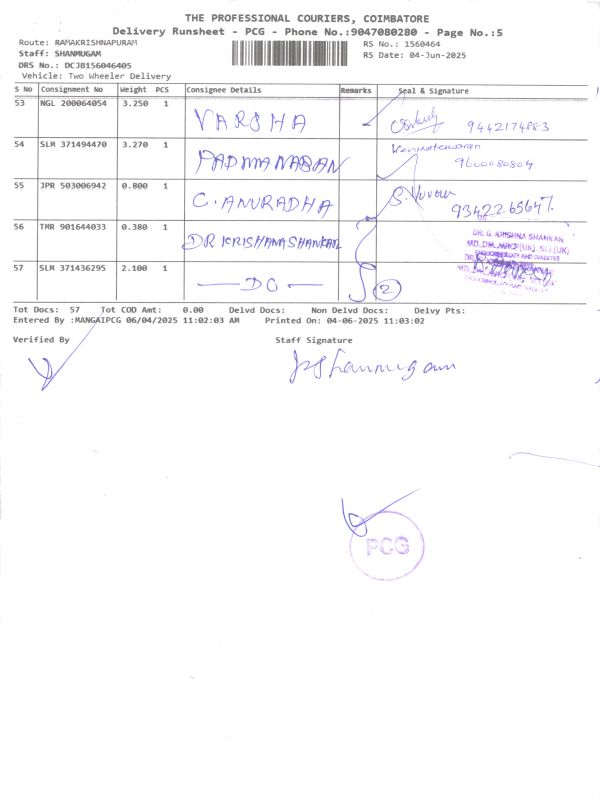 THE PROFESSIONAL COURIERS, COIMBATORE
Delivery Runsheet - PCG - Phone No.:9047080280 - Page No.:5
Route: RAMAKRISHNAPURAM RS No.: 1560464
Staff: SHANMUGAM RS Date: 04-Jun-2025
DRS No.: DCJB156046405
Vehicle: Two Wheeler Delivery
S No Consignment No Weight PCS Consignee Details Remarks Seal & Signature
53 NGL 200064054 3.250 1 VARSHA 9442174883
54 SLM 371494470 3.270 1 PADMANABAN 9600080804
55 JPR 503006942 0.800 1 C. ANURADHA 9342265647
56 TMR 901644033 0.380 1 DR KRISHANASHANKAR DR. G. KRISHNA SHANKAN
57 SLM 371436295 2.100 1 — DO — 2
Tot Docs: 57 Tot COD Amt: 0.00 Delvd Docs: Non Delvd Docs: Delvy Pts:
Entered By :MANGAIPCG 06/04/2025 11:02:03 AM Printed On: 04-06-2025 11:03:02
Verified By Staff Signature
PShanmugam
PCG